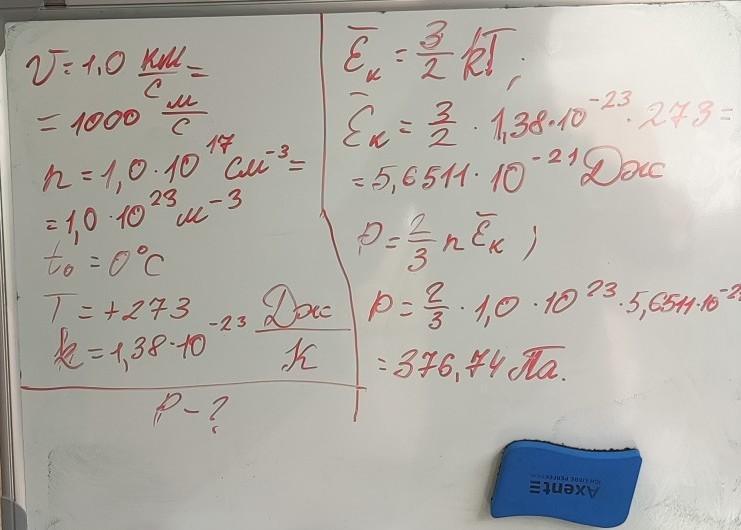 v = 1,0 км/с =
= 1000 м/с
n = 1,0 · 10¹⁷ см⁻³ =
= 1,0 · 10²³ м⁻³
t₀ = 0°C
T = +273
k = 1,38 · 10⁻²³ Дж/К
P - ?
Ēₖ = 3/2 kT;
Ēₖ = 3/2 · 1,38 · 10⁻²³ · 273 =
= 5,6511 · 10⁻²¹ Дж
P = 2/3 n Ēₖ;
P = 2/3 · 1,0 · 10²³ · 5,6511 · 10⁻²
= 376,74 Па.
Axent